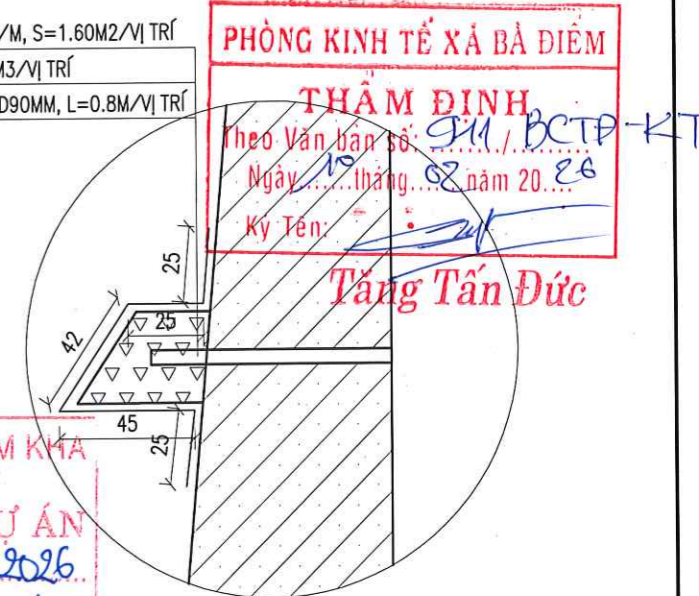 /M, S=1.60M2/VỊ TRÍ
M3/VỊ TRÍ
D90MM, L=0.8M/VỊ TRÍ
PHÒNG KINH TẾ XÃ BÀ ĐIỂM
THẨM ĐỊNH
Theo Văn bản số: 911/BCTĐ-KT
Ngày 10 tháng 02 năm 2026
Ký Tên:
Tăng Tấn Đức
25
25
42
45
25
M KHA
Ự ÁN
2026